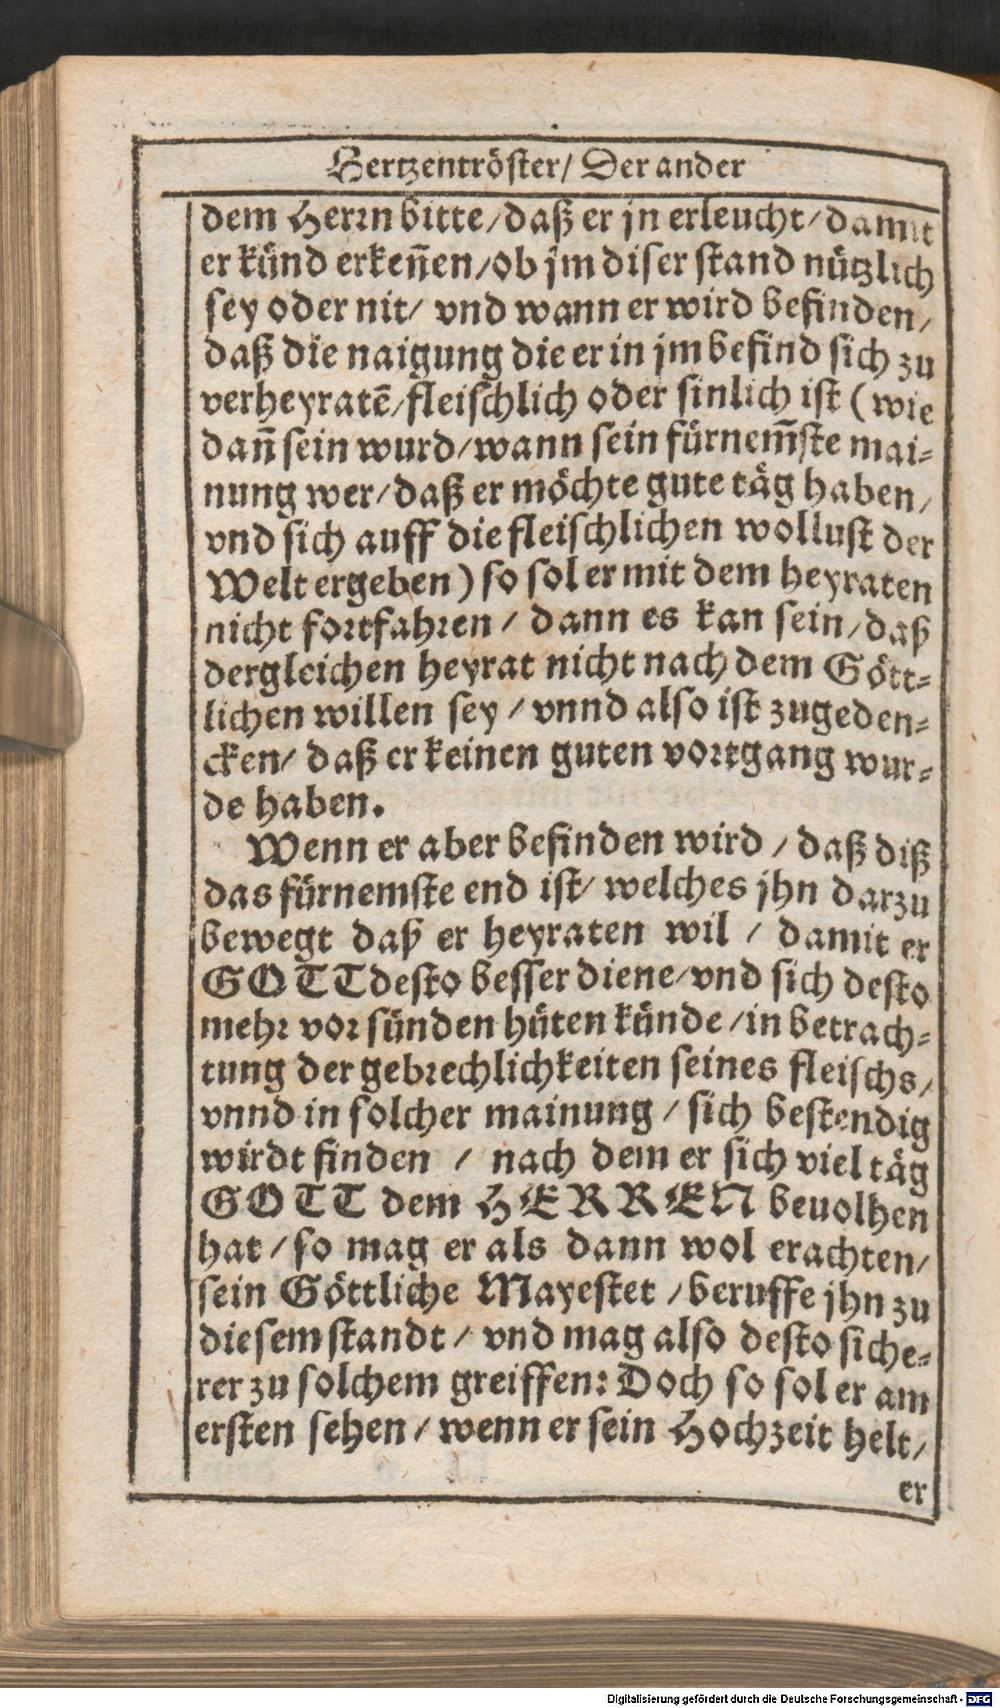 Hertzentröster/ Der ander
dem Herrn bitte/daß er jn erleucht/damit
er künd erkeñen/ob jm diser stand nützlich
sey oder nit/ vnd wann er wird befinden/
daß die naigung die er in jm befind sich zu
verheyratẽ/fleischlich oder sinlich ist (wie
dañ sein wurd/wann sein fürnem̃ste mai-
nung wer/daß er möchte gute täg haben/
vnd sich auff die fleischlichen wollust der
Welt ergeben) so sol er mit dem heyraten
nicht fortfahren/ dann es kan sein/daß
dergleichen heyrat nicht nach dem Gött-
lichen willen sey/ vnnd also ist zugeden-
cken/ daß er keinen guten vortgang wur-
de haben.
Wenn er aber befinden wird/ daß diß
das fürnemste end ist/ welches jhn darzu
bewegt daß er heyraten wil/ damit er
GOTT desto besser diene/vnd sich desto
mehr vor sünden hüten künde/in betrach-
tung der gebrechlichkeiten seines fleischs/
vnnd in solcher mainung/ sich bestendig
wirdt finden/ nach dem er sich viel täg
GOTT dem HERREN beuolhen
hat/ so mag er als dann wol erachten/
sein Göttliche Mayestet/beruffe jhn zu
diesem standt/ vnd mag also desto siche-
rer zu solchem greiffen: Doch so sol er am
ersten sehen/ wenn er sein Hochzeit helt/
er
Digitalisierung gefördert durch die Deutsche Forschungsgemeinschaft - DFG